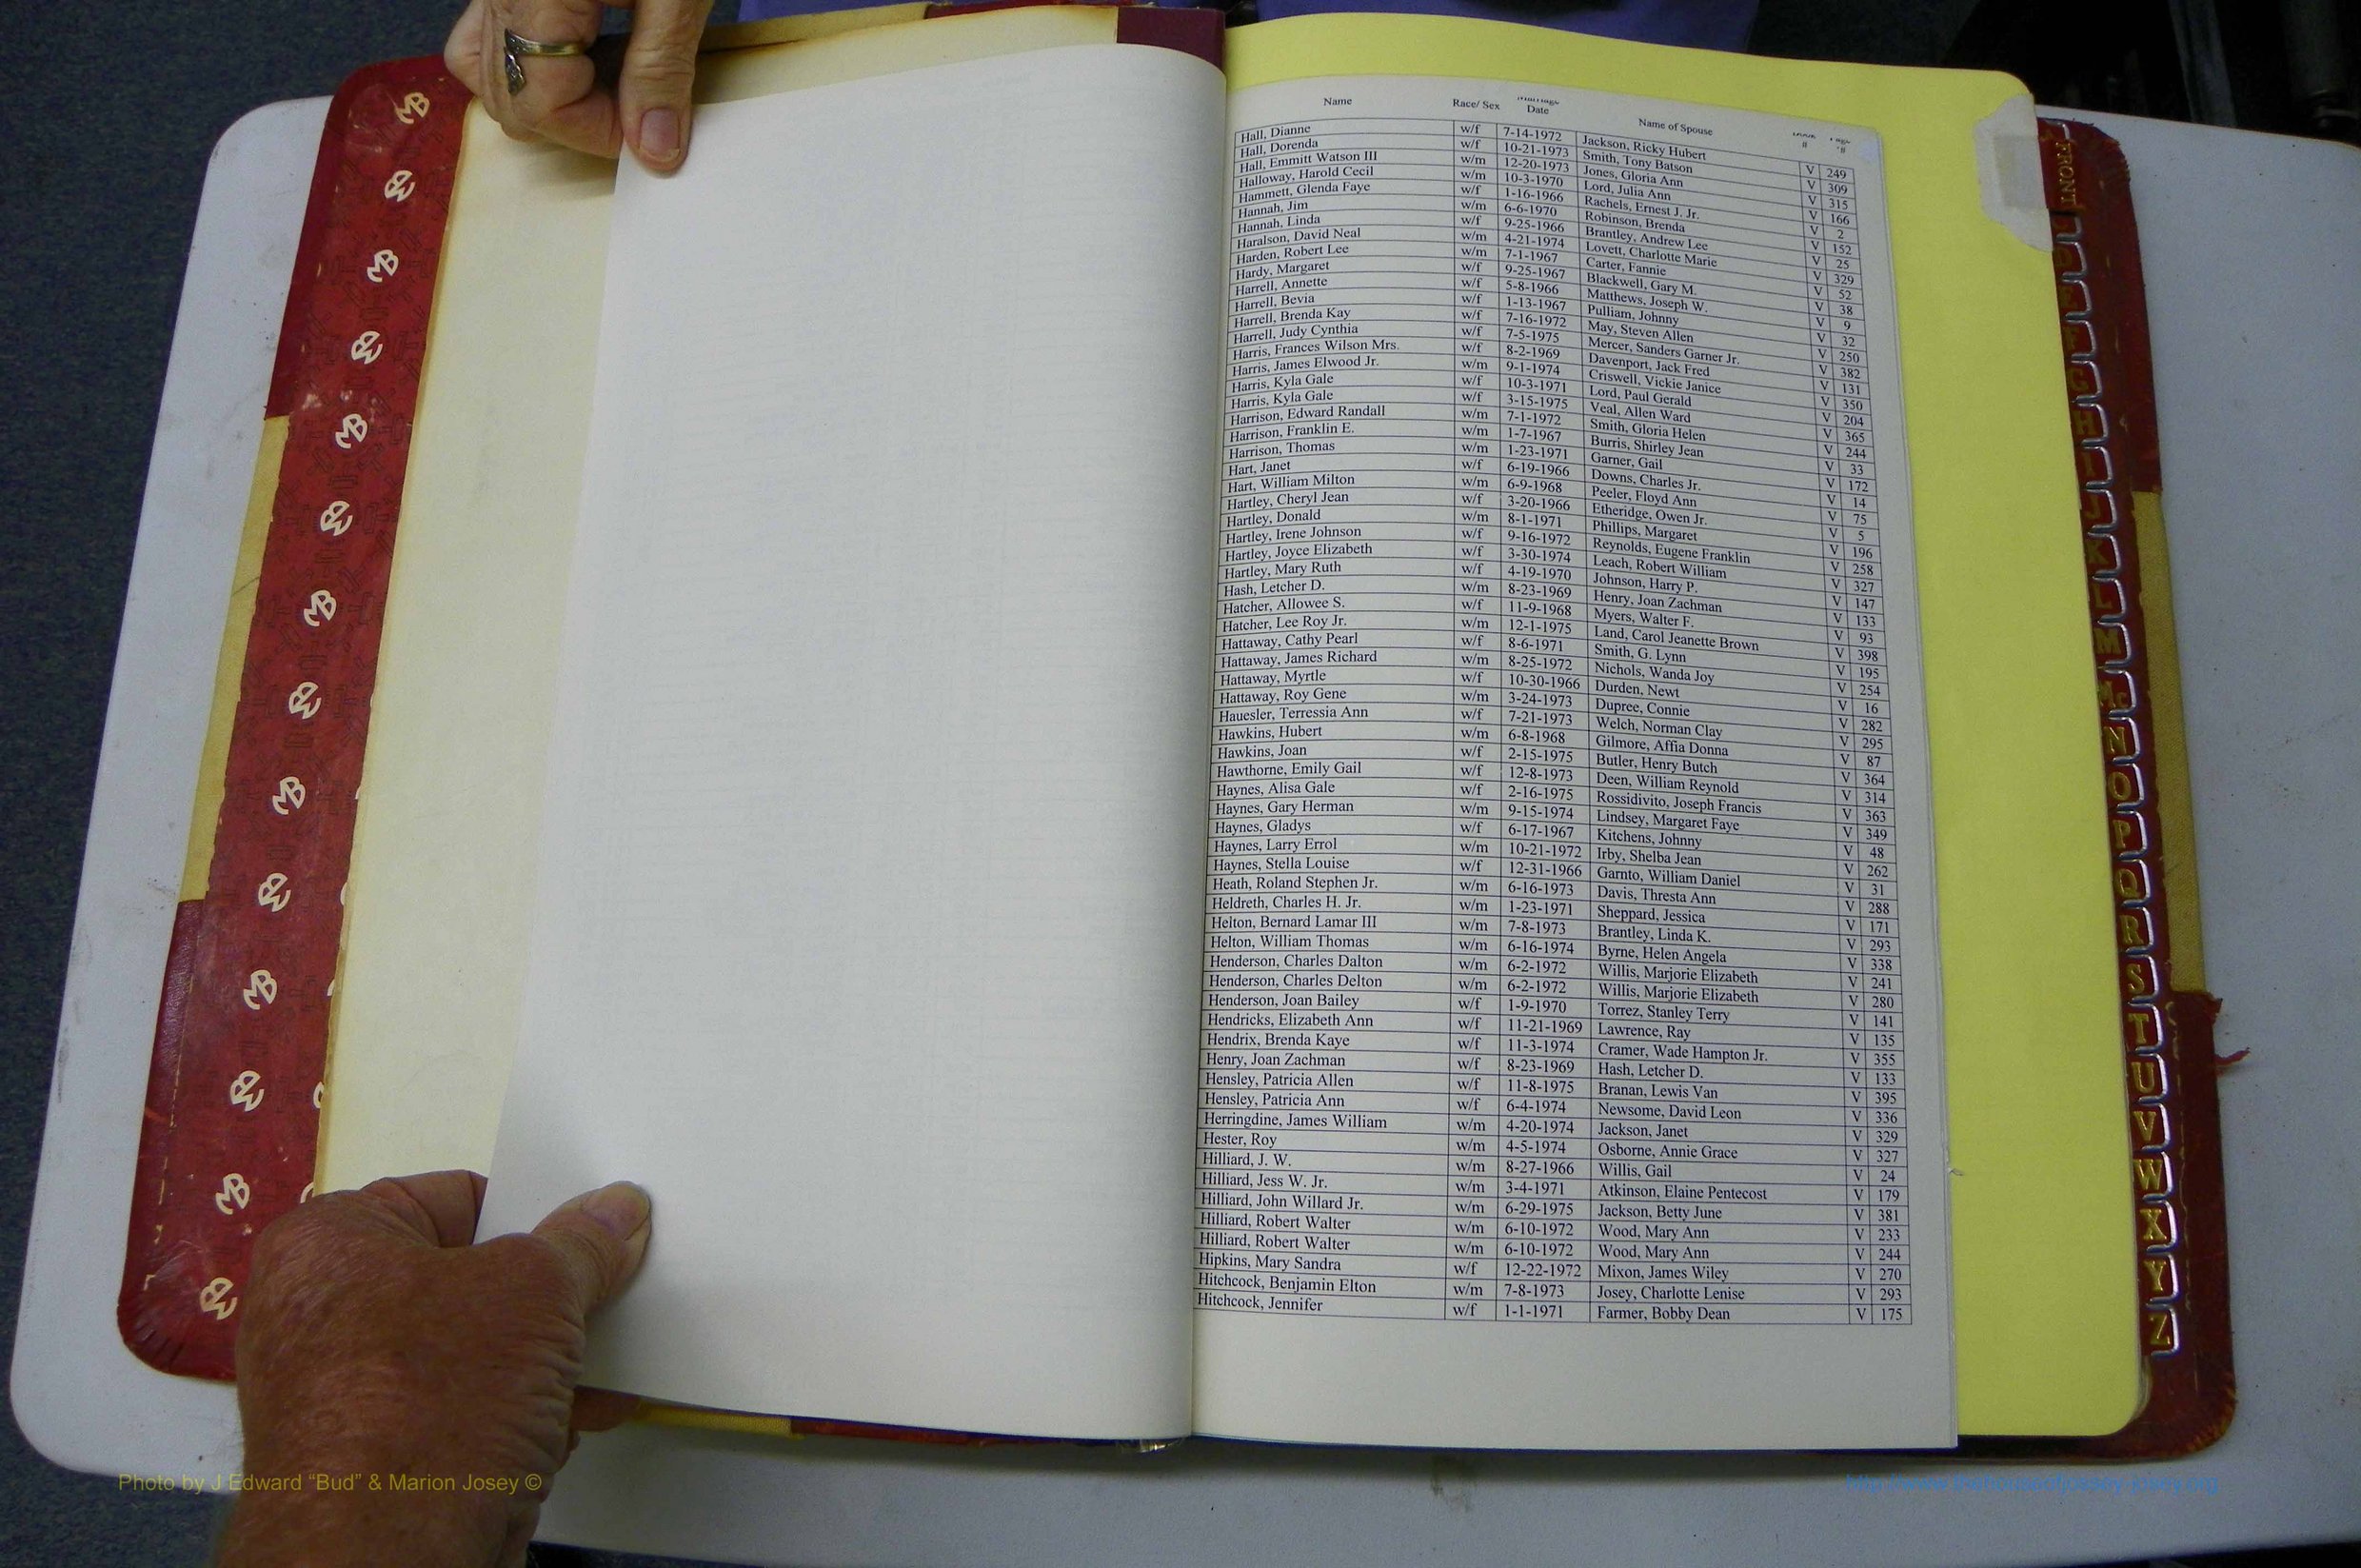 Name Race/ Sex Marriage Date Name of Spouse # #
Hall, Dianne w/f 7-14-1972 Jackson, Ricky Hubert V 249
Hall, Dorenda w/f 10-21-1973 Smith, Tony Batson V 309
Hall, Emmitt Watson III w/m 12-20-1973 Jones, Gloria Ann V 315
Halloway, Harold Cecil w/m 10-3-1970 Lord, Julia Ann V 166
Hammett, Glenda Faye w/f 1-16-1966 Rachels, Ernest J. Jr. V 2
Hannah, Jim w/m 6-6-1970 Robinson, Brenda V 152
Hannah, Linda w/f 9-25-1966 Brantley, Andrew Lee V 25
Haralson, David Neal w/m 4-21-1974 Lovett, Charlotte Marie V 329
Harden, Robert Lee w/m 7-1-1967 Carter, Fannie V 52
Hardy, Margaret w/f 9-25-1967 Blackwell, Gary M. V 38
Harrell, Annette w/f 5-8-1966 Matthews, Joseph W. V 9
Harrell, Bevia w/f 1-13-1967 Pulliam, Johnny V 32
Harrell, Brenda Kay w/f 7-16-1972 May, Steven Allen V 250
Harrell, Judy Cynthia w/f 7-5-1975 Mercer, Sanders Garner Jr. V 382
Harris, Frances Wilson Mrs. w/f 8-2-1969 Davenport, Jack Fred V 131
Harris, James Elwood Jr. w/m 9-1-1974 Criswell, Vickie Janice V 350
Harris, Kyla Gale w/f 10-3-1971 Lord, Paul Gerald V 204
Harris, Kyla Gale w/f 3-15-1975 Veal, Allen Ward V 365
Harrison, Edward Randall w/m 7-1-1972 Smith, Gloria Helen V 244
Harrison, Franklin E. w/m 1-7-1967 Burris, Shirley Jean V 33
Harrison, Thomas w/m 1-23-1971 Garner, Gail V 172
Hart, Janet w/f 6-19-1966 Downs, Charles Jr. V 14
Hart, William Milton w/m 6-9-1968 Peeler, Floyd Ann V 75
Hartley, Cheryl Jean w/f 3-20-1966 Etheridge, Owen Jr. V 5
Hartley, Donald w/m 8-1-1971 Phillips, Margaret V 196
Hartley, Irene Johnson w/f 9-16-1972 Reynolds, Eugene Franklin V 258
Hartley, Joyce Elizabeth w/f 3-30-1974 Leach, Robert William V 327
Hartley, Mary Ruth w/f 4-19-1970 Johnson, Harry P. V 147
Hash, Letcher D. w/m 8-23-1969 Henry, Joan Zachman V 133
Hatcher, Allowee S. w/f 11-9-1968 Myers, Walter F. V 93
Hatcher, Lee Roy Jr. w/m 12-1-1975 Land, Carol Jeanette Brown V 398
Hattaway, Cathy Pearl w/f 8-6-1971 Smith, G. Lynn V 195
Hattaway, James Richard w/m 8-25-1972 Nichols, Wanda Joy V 254
Hattaway, Myrtle w/f 10-30-1966 Durden, Newt V 16
Hattaway, Roy Gene w/m 3-24-1973 Dupree, Connie V 282
Hauesler, Terressia Ann w/f 7-21-1973 Welch, Norman Clay V 295
Hawkins, Hubert w/m 6-8-1968 Gilmore, Affia Donna V 87
Hawkins, Joan w/f 2-15-1975 Butler, Henry Butch V 364
Hawthorne, Emily Gail w/f 12-8-1973 Deen, William Reynold V 314
Haynes, Alisa Gale w/f 2-16-1975 Rossidivito, Joseph Francis V 363
Haynes, Gary Herman w/m 9-15-1974 Lindsey, Margaret Faye V 349
Haynes, Gladys w/f 6-17-1967 Kitchens, Johnny V 48
Haynes, Larry Errol w/m 10-21-1972 Irby, Shelba Jean V 262
Haynes, Stella Louise w/f 12-31-1966 Garnto, William Daniel V 31
Heath, Roland Stephen Jr. w/m 6-16-1973 Davis, Thresta Ann V 288
Heldreth, Charles H. Jr. w/m 1-23-1971 Sheppard, Jessica V 171
Helton, Bernard Lamar III w/m 7-8-1973 Brantley, Linda K. V 293
Helton, William Thomas w/m 6-16-1974 Byrne, Helen Angela V 338
Henderson, Charles Dalton w/m 6-2-1972 Willis, Marjorie Elizabeth V 241
Henderson, Charles Delton w/m 6-2-1972 Willis, Marjorie Elizabeth V 280
Henderson, Joan Bailey w/f 1-9-1970 Torrez, Stanley Terry V 141
Hendricks, Elizabeth Ann w/f 11-21-1969 Lawrence, Ray V 135
Hendrix, Brenda Kaye w/f 11-3-1974 Cramer, Wade Hampton Jr. V 355
Henry, Joan Zachman w/f 8-23-1969 Hash, Letcher D. V 133
Hensley, Patricia Allen w/f 11-8-1975 Branan, Lewis Van V 395
Hensley, Patricia Ann w/f 6-4-1974 Newsome, David Leon V 336
Herringdine, James William w/m 4-20-1974 Jackson, Janet V 329
Hester, Roy w/m 4-5-1974 Osborne, Annie Grace V 327
Hilliard, J. W. w/m 8-27-1966 Willis, Gail V 24
Hilliard, Jess W. Jr. w/m 3-4-1971 Atkinson, Elaine Pentecost V 179
Hilliard, John Willard Jr. w/m 6-29-1975 Jackson, Betty June V 381
Hilliard, Robert Walter w/m 6-10-1972 Wood, Mary Ann V 233
Hilliard, Robert Walter w/m 6-10-1972 Wood, Mary Ann V 244
Hipkins, Mary Sandra w/f 12-22-1972 Mixon, James Wiley V 270
Hitchcock, Benjamin Elton w/m 7-8-1973 Josey, Charlotte Lenise V 293
Hitchcock, Jennifer w/f 1-1-1971 Farmer, Bobby Dean V 175
FRONT
H
L
M
Mc
N
O
P
Q
R
S
T
U
V
W
X
Y
Z
Photo by J Edward “Bud” & Marion Josey ©
http://www.thehouseofjossey-josey.org